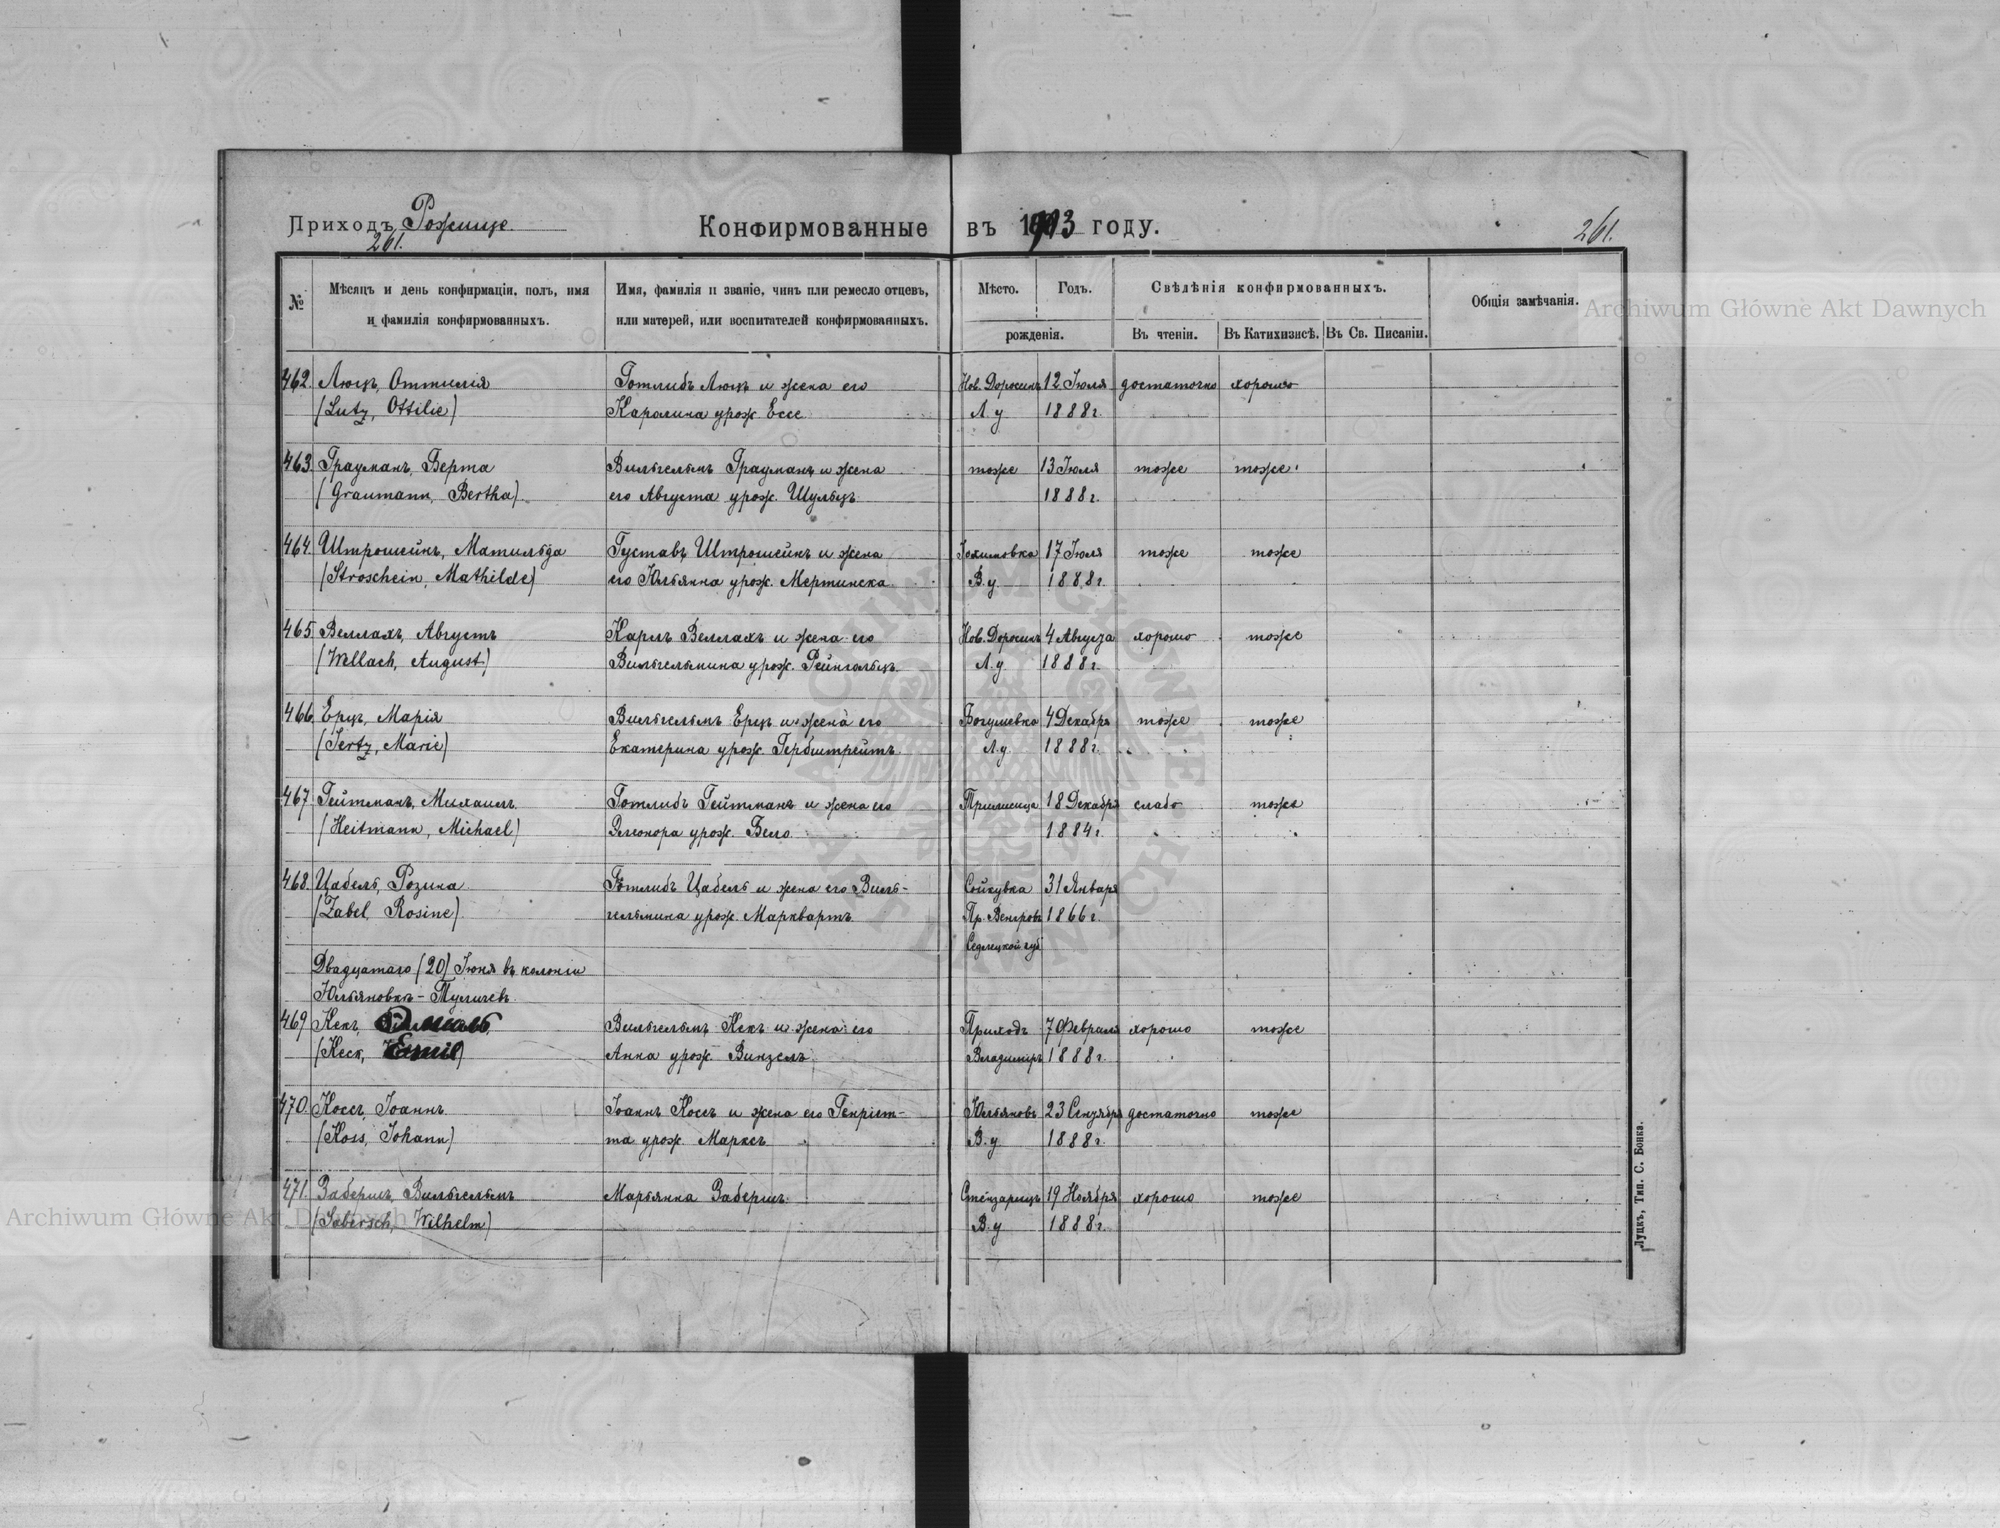 Приходъ Рожище.
261.
Конфирмованные въ 1903 году.
261.
№
Мѣсяцъ и день конфирмаціи, полъ, имя и фамилія конфирмованныхъ.
Имя, фамилія и званіе, чинъ или ремесло отцевъ, или матерей, или воспитателей конфирмованныхъ.
Мѣсто.
Годъ.
рожденія.
Свѣдѣнія конфирмованныхъ.
Въ чтеніи.
Въ Катихизисѣ.
Въ Св. Писаніи.
Общія замѣчанія.
462. Люцъ, Оттилія Готлибъ Люцъ и жена его Нов. Доросинъ 12 Іюля достаточно хорошо
(Lutz, Ottilie) Каролина урож. Ессе Л. у 1888 г.
463. Грауманъ, Берта Вильгельмъ Грауманъ и жена тоже 13 Іюля тоже тоже
(Graumann, Bertha) его Августа урож. Шульцъ 1888 г.
464. Штрошейнъ, Матильда Густавъ Штрошейнъ и жена 17 Іюля тоже тоже
(Stroschein, Mathilde) его Юльянна урож. Мертинска В. у. 1888 г.
465. Веллахъ, Августъ Карлъ Веллахъ и жена его Нов. Доросинъ 4 Августа хорошо тоже
(Wellach, August) Вильгельмина урож. Рейнгольцъ Л. у 1888 г.
466. Ерцъ, Марія Вильгельмъ Ерцъ и жена его Богушевка 4 Декабря тоже тоже
(Jertz, Marie) Екатерина урож. Гербштрейтъ Л. у 1888 г.
467. Гейтманъ, Михаилъ Готлибъ Гейтманъ и жена его 18 Декабря слабо тоже
(Heitmann, Michael) Элеонора урож. 1884 г.
468. Цабель, Розина Готлибъ Цабель и жена его Виль- Сойкувка 31 Января
(Zabel, Rosine) гельмина урож. Марквартъ Пр. Венгровъ 1866 г.
Седлецкой губ
Двадцатаго (20) Іюня въ колоніи
Юльяновкѣ-Туличевъ
469 Кекъ, Эмиль Вильгельмъ Кекъ и жена его Приходъ 7 Февраля хорошо тоже
(Keck, Emil) Анна урож. Винзель Владимиръ 1888 г.
470. Коссъ, Іоаннъ Іоаннъ Коссъ и жена его Генріет- Юльяновъ 23 Сентября достаточно тоже
(Koss, Johann) та урож. Марксъ В. у 1888 г.
471. Забершъ, Вильгельмъ Марьянна Забершъ 19 Ноября хорошо тоже
(Sabersch, Wilhelm) В. у 1888 г.
Луцкъ, Тип. С. Бонка.
Archiwum Główne Akt Dawnych
Archiwum Główne Akt Dawnych
ARCHIWUM GŁÓWNE AKT DAWNYCH